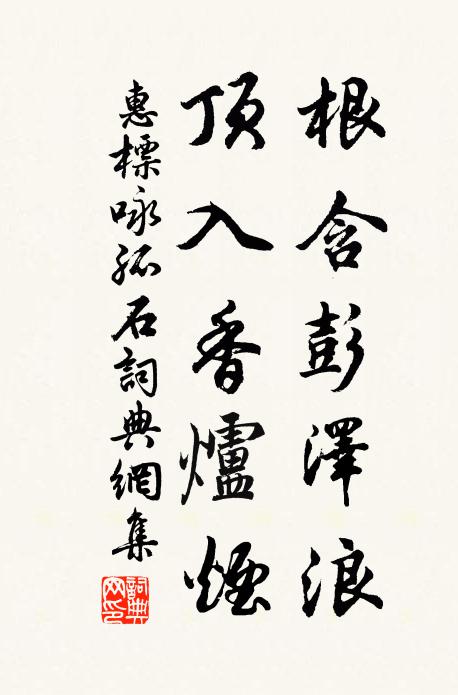 根含彭澤浪
頂入香爐煙
惠標咏孤石詞典網集
詞典網印